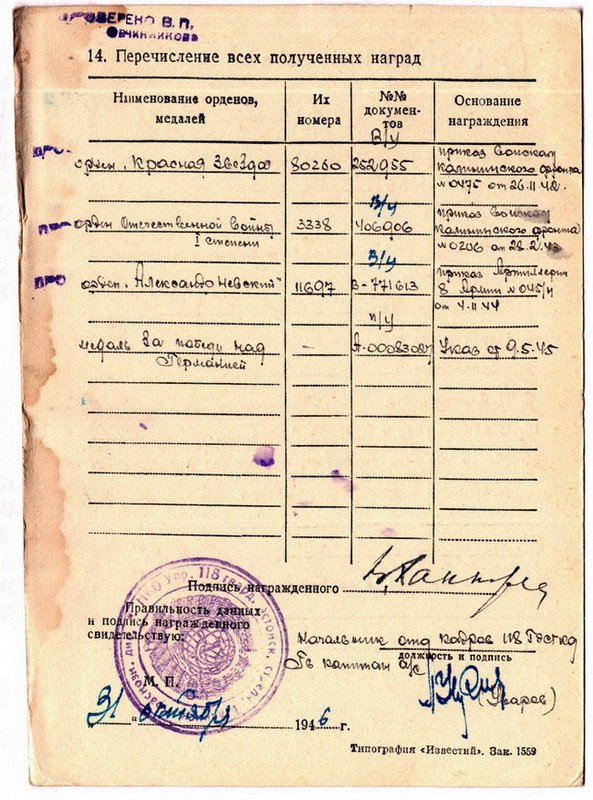 ПРОВЕРЕНО В. П.
ОВЧИННИКОВА
14. Перечисление всех полученных наград
Наименование орденов, медалей
Их номера
№№ документов
Основание награждения
В/у
ПРО орден „Красная Звезда 80260 252955 приказ войскам
Калининского фронта
№ 0475 от 26.11.42.
В/у
ПРО орден Отечественной войны 3338 406906 приказ войскам
I степени Калининского фронта
№ 0206 от 28.2.43
В/у
ПРО орден „Александр Невский" 11697 В-771613 приказ Артиллерии
8 Армии № 045/н
от 4.11.44
п/у
медаль За победу над – А-0008308 Указ от 9.5.45
Германией
Подпись награжденного
Правильность данных
и подпись награжденного
свидетельствую:
Начальник отд кадров 118
должность и подпись
Гв капитан а/с
(Уваров)
М. П.
31 „ октября 1946 г.
Типография «Известий». Зак. 1559